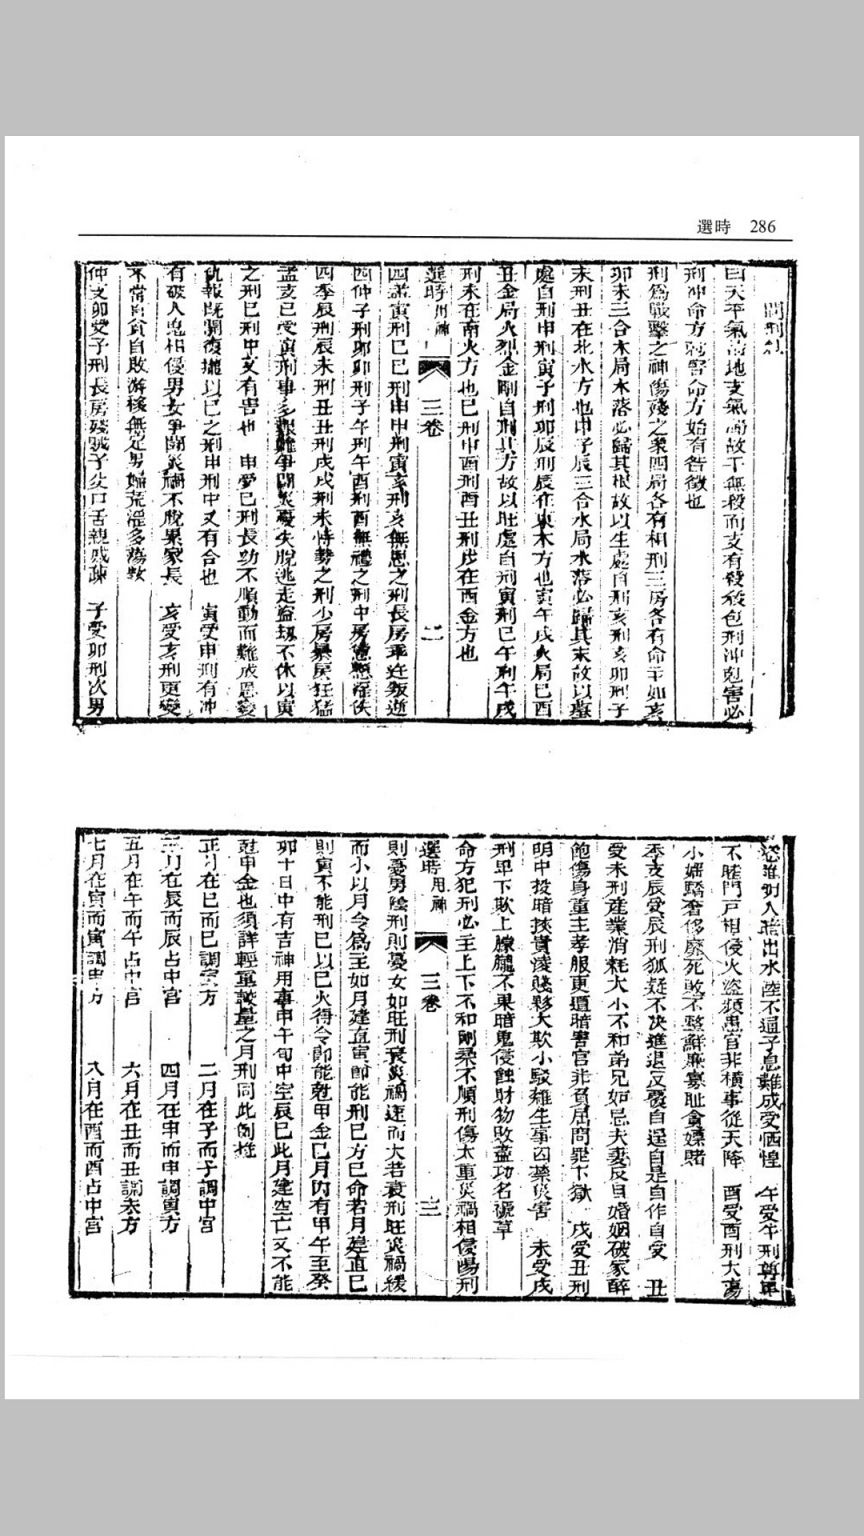 選時 286
曰天干氣 地支氣 故干無殺而支有殺殺包刑冲剋害必
刑冲命方剋害命方始有咎徵也
刑爲戰擊之神傷殘之象四局各有相刑三房各有命主如亥
卯未三合木局木落必歸其根故以生處自刑亥刑亥卯刑子
未刑丑在北水方也申子辰三合水局水落必歸其末故以墓
處自刑申刑寅子刑卯辰刑辰在東木方也寅午戌火局巳酉
丑金局火烈金剛自刑其方故以旺處自刑寅刑巳午刑午戌
刑未在南火方也巳刑申酉刑酉丑刑戌在西金方也
選時用神 三卷 二
四孟寅刑巳巳刑申申刑寅亥刑亥無恩之刑長房乖迕叛逆
四仲子刑卯卯刑子午刑午酉刑酉無禮之刑中房 淫佚
四季辰刑辰未刑丑丑刑戌戌刑未恃勢之刑少房暴戾狂猛
孟支巳受寅刑事多艱難爭鬪災憂失脫逃走盜刼不休以寅
之刑巳刑中又有害也 申受巳刑長幼不順動而難成恩變
仇報既關復 以巳之刑申刑中又有合也 寅受申刑有冲
有破人鬼相侵男女爭鬪災禍不脫累家長 亥受亥刑更變
不常 自敗游移無定男婦荒淫多蕩敗
仲支卯受子刑長房殘 子 口舌親戚疎 子受卯刑次男
水陸不通子息難成受恓惶 午受午刑尊卑
不睦門戶相侵火盜頻患官非橫事從天降 酉受酉刑大蕩
小婬驕奢侈靡死敗不整鮮廉寡耻貪嫖賭
季支辰受辰刑狐疑不決進退反覆自逞自是自作自受 丑
受未刑產業消耗大小不和弟兄妬忌夫妻反目婚姻破家醉
飽傷身重主孝服更遭暗害官非貧屈問罪下獄 戌受丑刑
明中投暗挾貴淩賤夥大欺小駁雜生事囚禁災害 未受戌
刑卑下欺上朦朧不果暗鬼侵蝕財物敗盡功名 草
命方犯刑必主上下不和剛柔不順刑傷太重災禍相侵陽刑
選時用神 三卷 三
則憂男陰刑則憂女如旺刑衰災禍速而大若衰刑旺災禍緩
而小以月令爲主如月建直寅節能刑巳方巳命若月建直巳
則寅不能刑巳以巳火得令節能剋申金巳月內有甲午至癸
卯十日中有吉神用事申午旬中空辰巳此月建空亡又不能
剋申金也須詳輕重 量之月刑同此例推
正月在巳而巳調寅方 二月在子而子調中宮
三月在辰而辰占中宮 四月在申而申調寅方
五月在午而午占中宮 六月在丑而丑調 方
七月在寅而寅調申方 八月在酉而酉占中宮